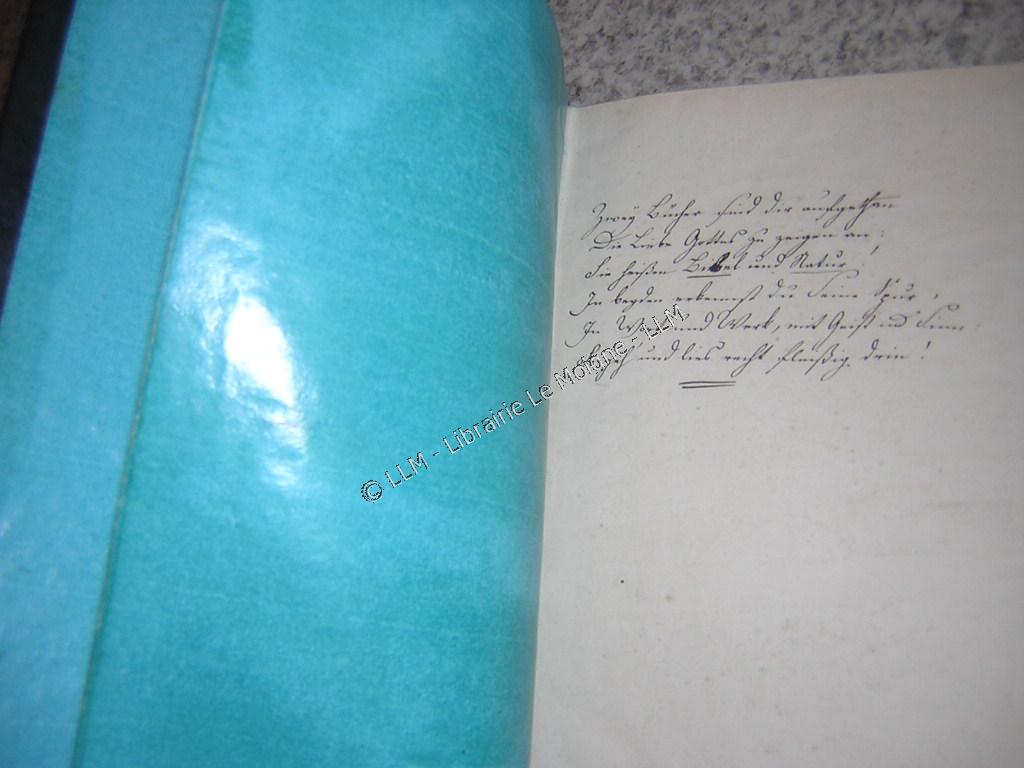 Zwey Bücher sind dir aufgethan
Die Liebe Gottes zu zeigen an;
Sie heißen Bibel und Natur.
In beyden erkennst du Seine Spur,
In Wort und Werk, mit Geist und Sinn
und lies recht fleißig drin!
© LLM - Librairie Le Molène - LLM